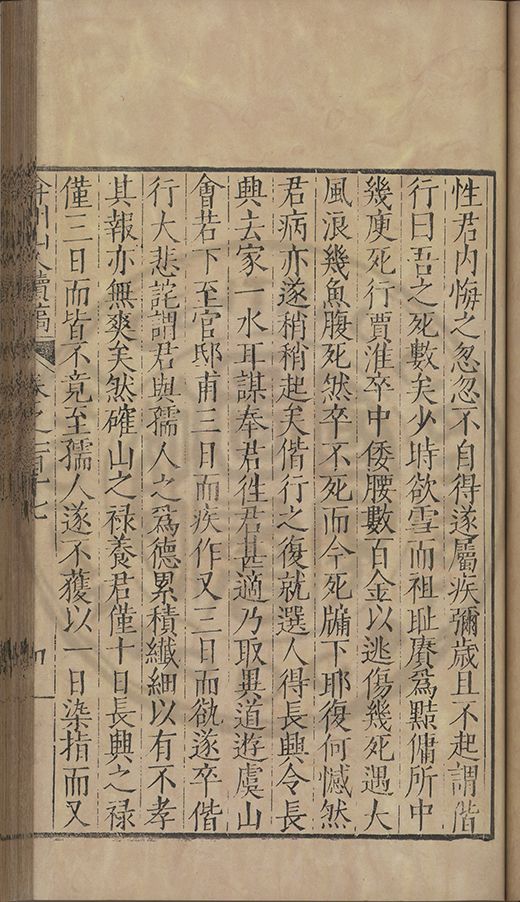 性君內悔之忽忽不自得遂屬疾彌歲且不起謂偕
行曰吾之死數矣少時欲雪而祖耻賡爲黠傭所中
幾庾死行賈淮卒中倭腰數百金以逃傷幾死遇大
風浪幾魚腹死然卒不死而今死牖下耶復何憾然
君病亦遂稍稍起矣偕行之復就選人得長興令長
興去家一水耳謀奉君徃君甚適乃取異道遊虞山
會若下至官邸甫三日而疾作又三日而欲遂卒偕
行大悲詫謂君與孺人之爲德累積纖細以有不孝
其報亦無爽矣然確山之禄養君僅十日長興之禄
僅三日而皆不竟至孺人遂不獲以一日染指而又
弇州山人續稿 卷之一百十七